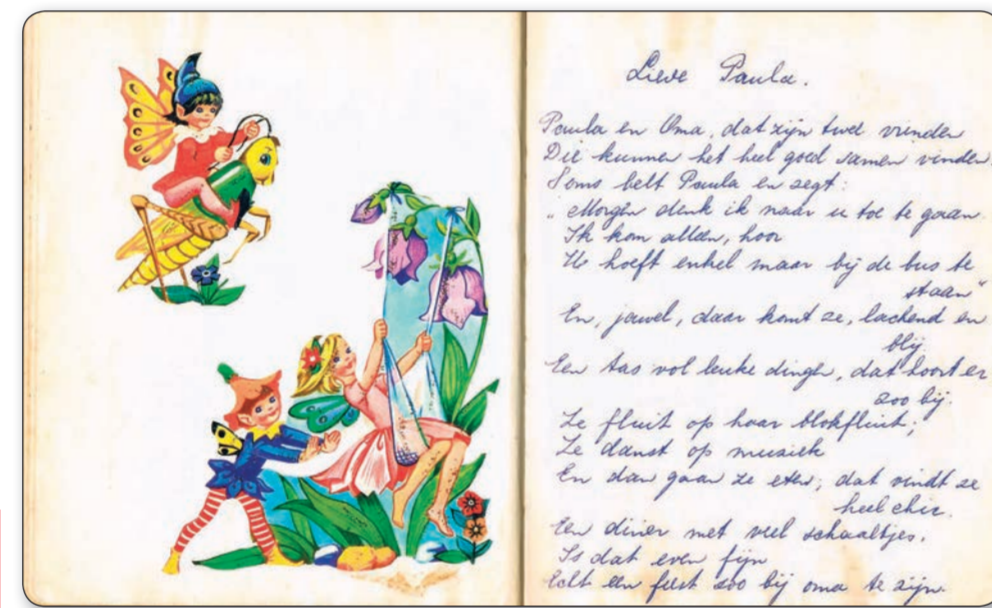 Lieve Paula.
Paula en Oma, dat zijn twee vrienden
Die kunnen het heel goed samen vinden.
Soms belt Paula en zegt:
„Morgen denk ik naar u toe te gaan.
Ik kom alleen, hoor
U hoeft enkel maar bij de bus te
staan"
En, jawel, daar komt ze, lachend en
blij
Een tas vol leuke dingen, dat hoort er
zoo bij.
Ze fluit op haar blokfluit;
Ze danst op muziek
En dan gaan ze eten; dat vindt ze
heel chic.
Een diner met veel schaaltjes.
Is dat even fijn
Echt een feest zoo bij oma te zijn.